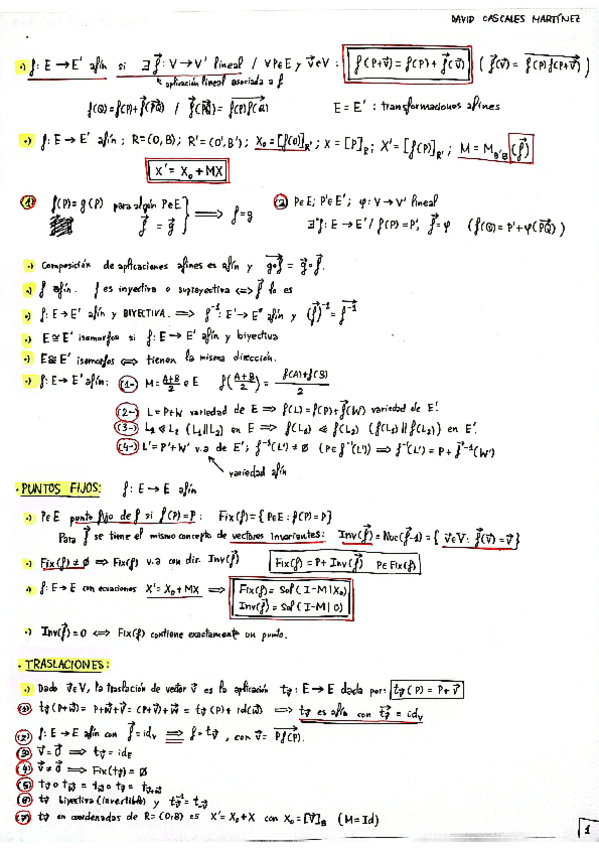 DAVID CASCALES MARTÍNEZ
·) f: E → E' afín si ∃ f⃗: V → V' lineal / ∀P∈E y v⃗∈V: f(P+v⃗) = f(P) + f⃗(v⃗) ( f⃗(v⃗) = f(P)f(P+v⃗) )
aplicación lineal asociada a f
f(Q) = f(P) + f⃗(PQ) / f⃗(PQ) = f(P)f(Q) E = E' : transformaciones afines
·) f: E → E' afín; R = (O, B); R' = (O', B'); X₀ = [f(O)]R'; X = [P]R; X' = [f(P)]R'; M = M B'B (f⃗)
X' = X₀ + MX
(1) f(P) = g(P) para algún P∈E
f⃗ = g⃗ ⟹ f = g
(2) P∈E; P'∈E'; φ: V → V' lineal
∃* f: E → E' / f(P) = P', f⃗ = φ (f(Q) = P' + φ(PQ))
·) Composición de aplicaciones afines es afín y g∘f = g⃗∘f⃗.
·) f afín. f es inyectiva o suprayectiva ⟺ f⃗ lo es
·) f: E → E' afín y BIYECTIVA. ⟹ f⁻¹: E' → E" afín y (f⃗)⁻¹ = f⁻¹
·) E ≅ E' isomorfos si f: E → E' afín y biyectiva
·) E ≅ E' isomorfos ⟺ tienen la misma dirección.
·) f: E → E' afín: (1-) M = A+B/2 ∈ E f(A+B/2) = f(A)+f(B)/2
(2-) L = P+W variedad de E ⟹ f(L) = f(P) + f⃗(W) variedad de E'.
(3-) L₁ ≪ L₂ (L₁ ∥ L₂) en E ⟹ f(L₁) ≪ f(L₂) (f(L₁) ∥ f(L₂)) en E'.
(4-) L' = P' + W' v.a de E'; f⁻¹(L') ≠ ∅ (P∈f⁻¹(L')) ⟹ f⁻¹(L') = P + f⃗⁻¹(W')
variedad afín
· PUNTOS FIJOS: f: E → E afín
·) P∈E punto fijo de f si f(P) = P: Fix(f) = {P∈E : f(P) = P}
Para f⃗ se tiene el mismo concepto de vectores invariantes: Inv(f⃗) = Nuc(f⃗-1) = { v⃗∈V: f⃗(v⃗) = v⃗}
·) Fix(f) ≠ ∅ ⟹ Fix(f) v.a con dir. Inv(f⃗) Fix(f) = P + Inv(f⃗) P∈Fix(f)
·) f: E → E con ecuaciones X' = X₀ + MX ⟹ Fix(f) = Sol(I-M|X₀)
Inv(f⃗) = Sol(I-M|0)
·) Inv(f⃗) = 0 ⟺ Fix(f) contiene exactamente un punto.
· TRASLACIONES:
·) Dado v⃗∈V, la traslación de vector v⃗ es la aplicación tv⃗: E → E dada por: tv⃗(P) = P + v⃗
(1) tv⃗(P+w⃗) = P+w⃗+v⃗ = (P+v⃗)+w⃗ = tv⃗(P) + id(w⃗) ⟹ tv⃗ es afín con tv⃗ = idV
(2) f: E → E afín con f⃗ = idV ⟹ f = tv⃗, con v⃗ = Pf(P).
(3) v⃗ = 0⃗ ⟹ tv⃗ = idE
(4) v⃗ ≠ 0⃗ ⟹ Fix(tv⃗) = ∅
(5) tv⃗ ∘ tw⃗ = tw⃗ ∘ tv⃗ = tv⃗+w⃗
(6) tv⃗ biyectiva (invertible) y tv⃗⁻¹ = t-v⃗
(7) tv⃗ en coordenadas de R = (O,B) es X' = X₀ + X con X₀ = [v⃗]B (M = Id)
1